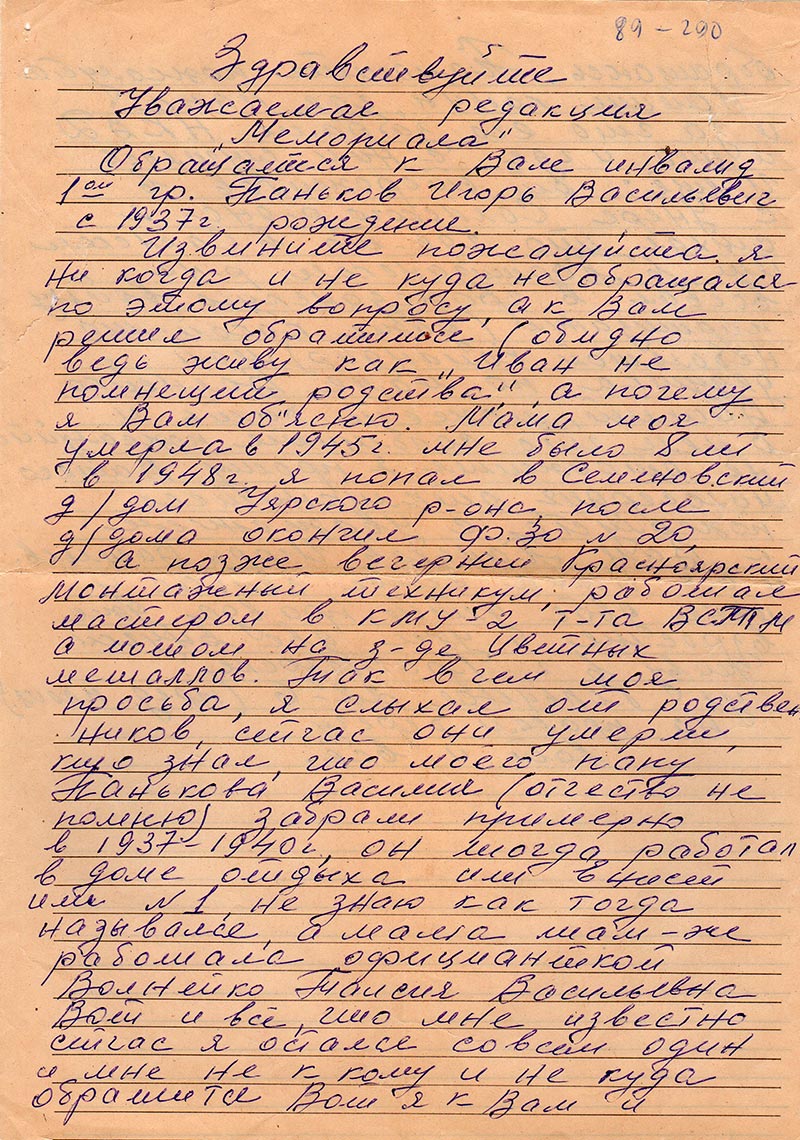 89 – 290
Здравствуйте
Уважаемая редакция
„Мемориала"
Обращается к Вам инвалид
1ой гр. Паньков Игорь Васильевич
с 1937г рождение.
Извините пожалуйста я
ни когда и не куда не обращался
по этому вопросу, а к Вам
решил обратится (обидно
ведь живу как „Иван не
помнещий родства", а почему
я Вам об"ясню. Мама моя
умерла в 1945г. мне было 8 лет
в 1948г. я попал в Семеновский
д/дом Уярского р-она, после
д/дома окончил Ф.ЗО № 20,
а позже вечерний Красноярский
монтажный техникум, работал
мастером в КМУ-2 т-та ВСТМ
а потом на з-де Цветных
металлов. Так в чем моя
просьба, я слыхал от родствен
ников, сейчас они умерли,
кто знал, что моего папу
Панькова Василия (отчество не
помню) забрали примерно
в 1937-1940г, он тогда работал
в доме отдыха или
или №1, не знаю как тогда
назывался, а мама там-же
работала официанткой
Волнейко Таисия Васильевна
Вот и всё, что мне известно
сейчас я остался совсем один
и мне не к кому и не куда
обратится Вот я к Вам и